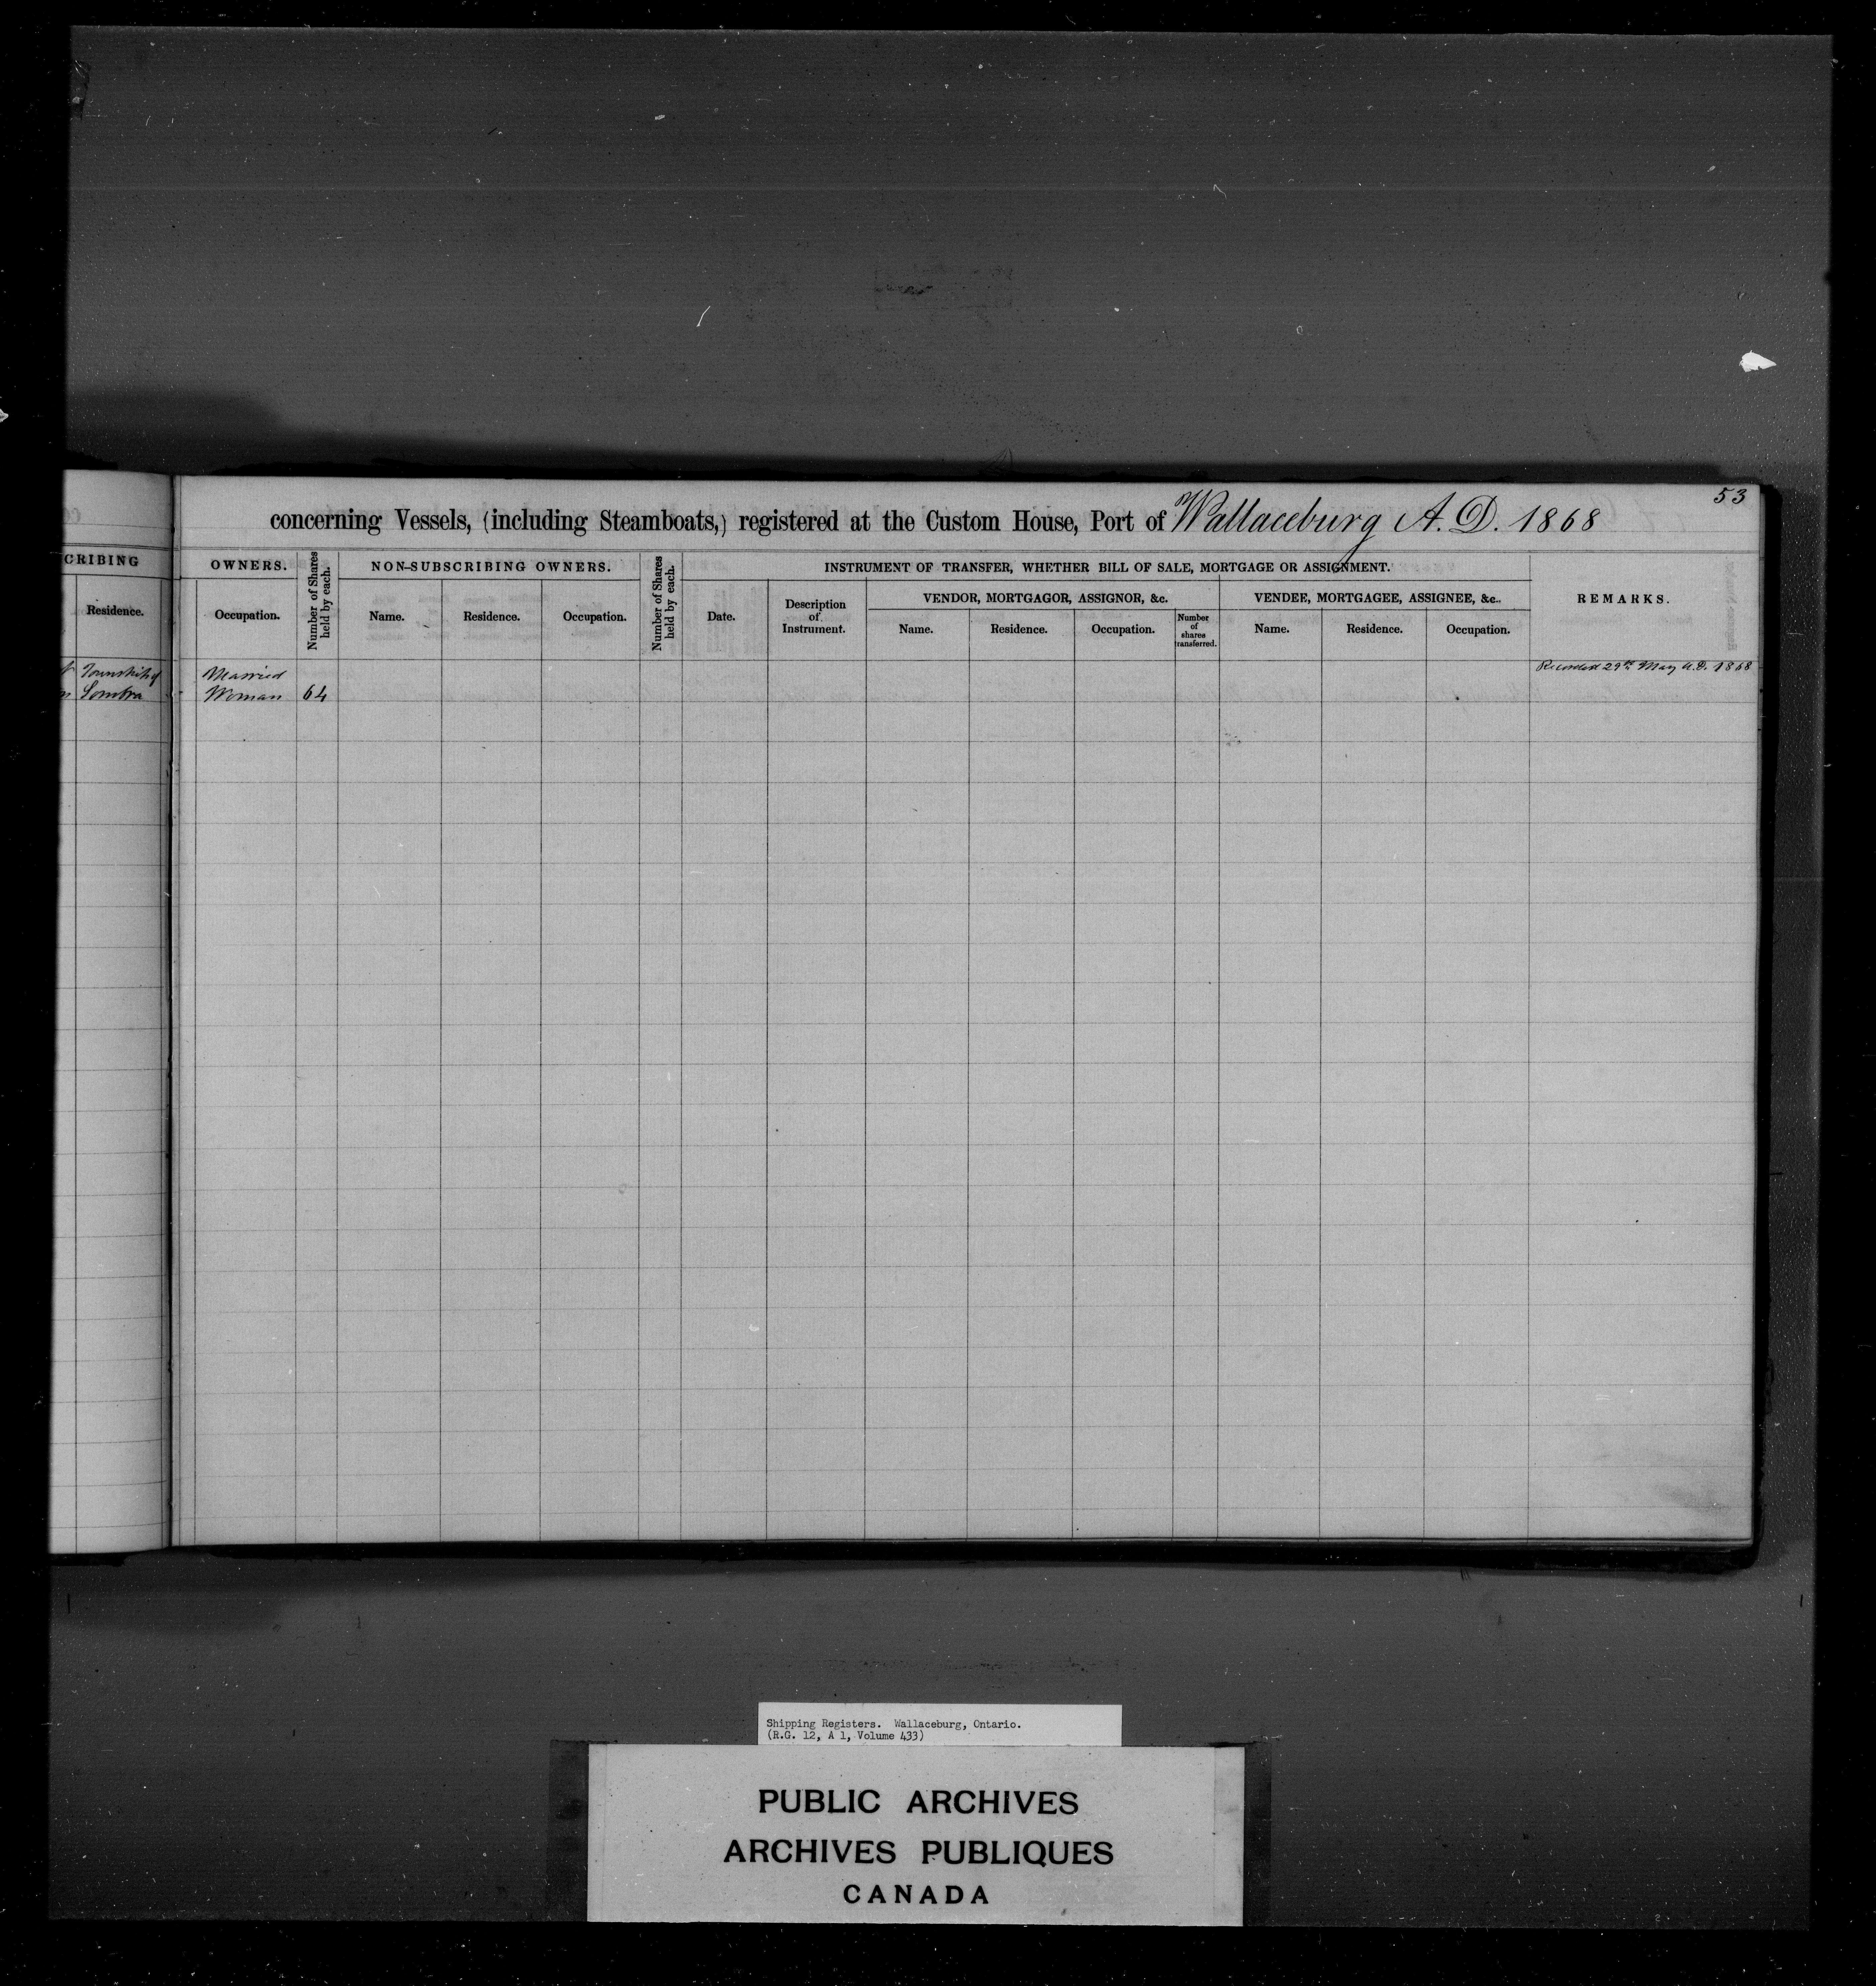 53
concerning Vessels, (including Steamboats,) registered at the Custom House, Port of Wallaceburg A.D. 1868
CRIBING
Residence.
OWNERS.
Occupation.
Number of Shares held by each.
NON-SUBSCRIBING OWNERS.
Name. Residence. Occupation.
Number of Shares held by each.
INSTRUMENT OF TRANSFER, WHETHER BILL OF SALE, MORTGAGE OR ASSIGNMENT.
Date.
Description
of
Instrument.
VENDOR, MORTGAGOR, ASSIGNOR, &c.
Name. Residence. Occupation.
Number
of
shares
transferred.
VENDEE, MORTGAGEE, ASSIGNEE, &c..
Name. Residence. Occupation.
REMARKS.
Township of Married Recorded 29th May A.D. 1868
Sombra Woman 64
Shipping Registers. Wallaceburg, Ontario.
(R.G. 12, A 1, Volume 433)
PUBLIC ARCHIVES
ARCHIVES PUBLIQUES
CANADA